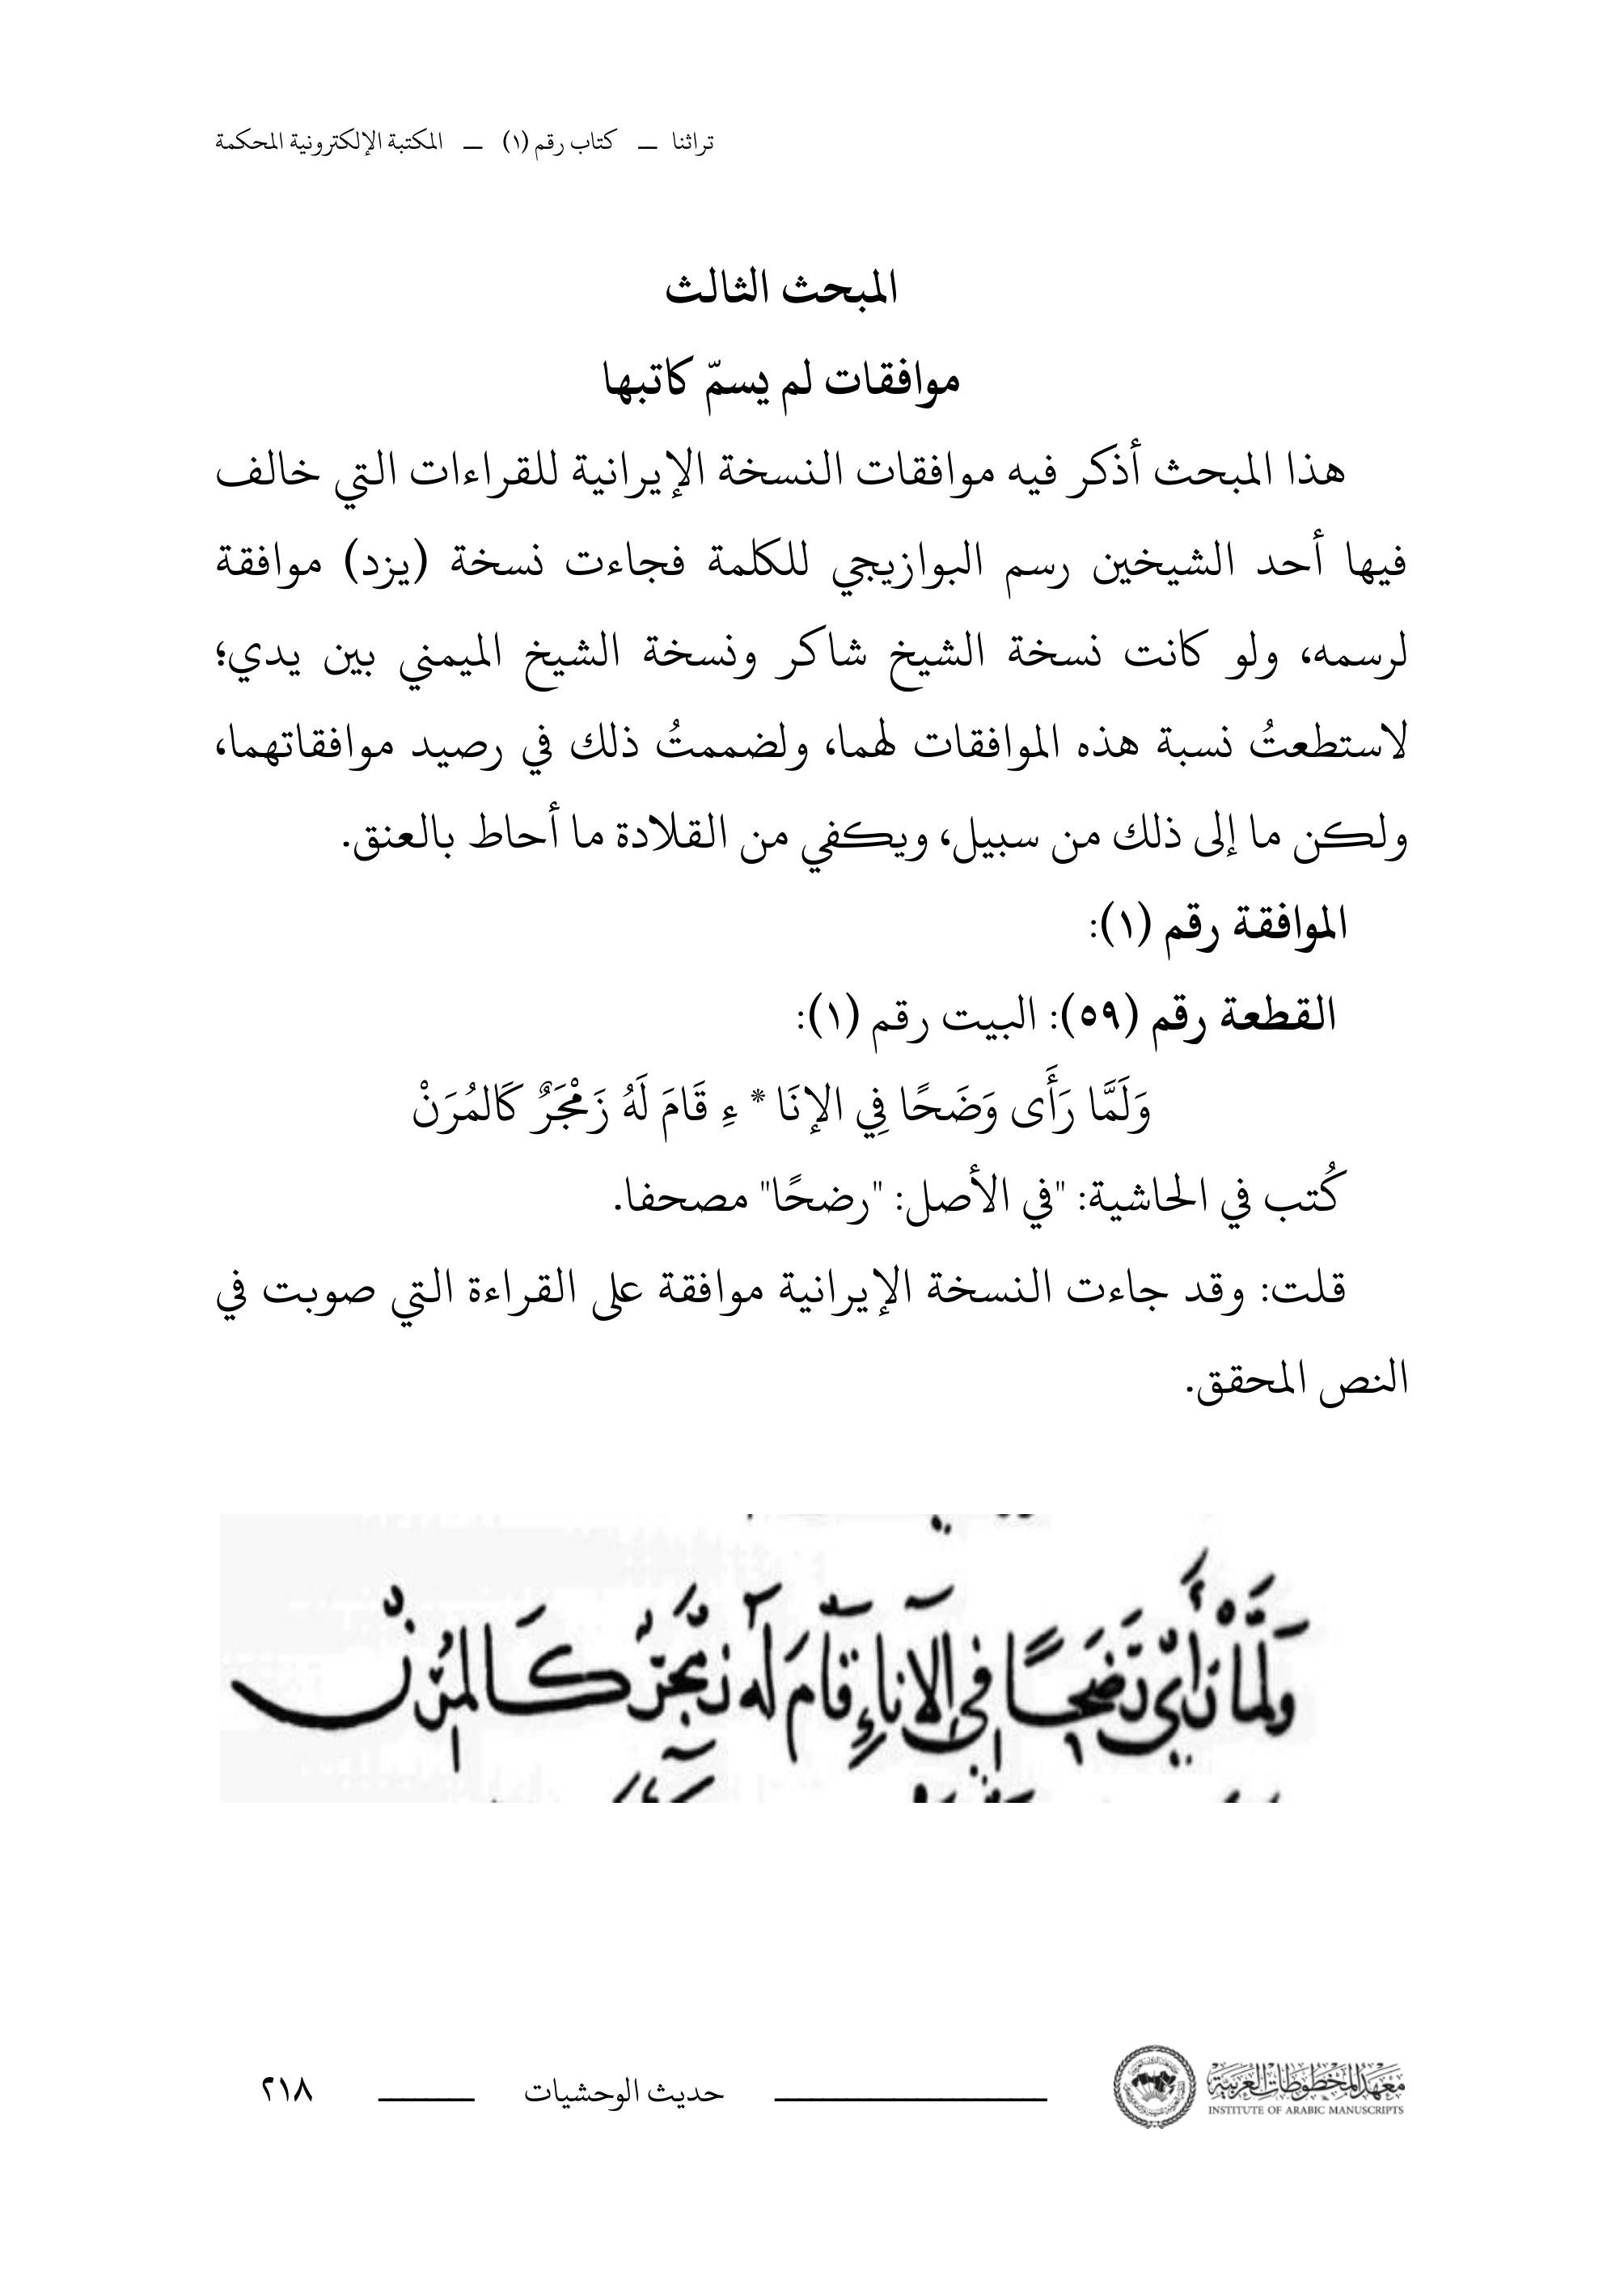 تراثنا — كتاب رقم (١) — المكتبة الإلكترونية المحكمة
المبحث الثالث
موافقات لم يسمّ كاتبها
هذا المبحث أذكر فيه موافقات النسخة الإيرانية للقراءات التي خالف
فيها أحد الشيخين رسم البوازيجي للكلمة فجاءت نسخة (يزد) موافقة
لرسمه، ولو كانت نسخة الشيخ شاكر ونسخة الشيخ الميمني بين يدي؛
لاستطعتُ نسبة هذه الموافقات لهما، ولضممتُ ذلك في رصيد موافقاتهما،
ولكن ما إلى ذلك من سبيل، ويكفي من القلادة ما أحاط بالعنق.
الموافقة رقم (١):
القطعة رقم (٥٩): البيت رقم (١):
وَلَمَّا رَأَى وَضَحًا فِي الإنَا * ءِ قَامَ لَهُ زَمْجَرٌ كَالمُرَنْ
كُتب في الحاشية: "في الأصل: "رضحًا" مصحفا.
قلت: وقد جاءت النسخة الإيرانية موافقة على القراءة التي صوبت في
النص المحقق.
ولما رأي في الإناءِ قامَ له كالمرنْ
معهد المخطوطات العربية
INSTITUTE OF ARABIC MANUSCRIPTS
حديث الوحشيات
٢١٨